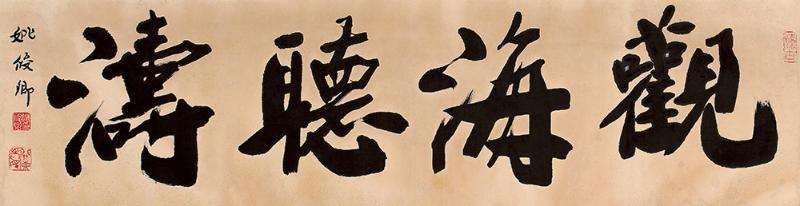 觀海聽濤
姚俊卿